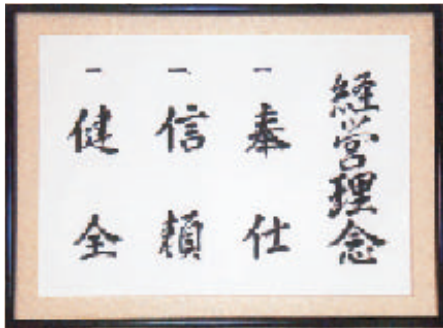 経営理念
一 奉仕
一 信頼
一 健全